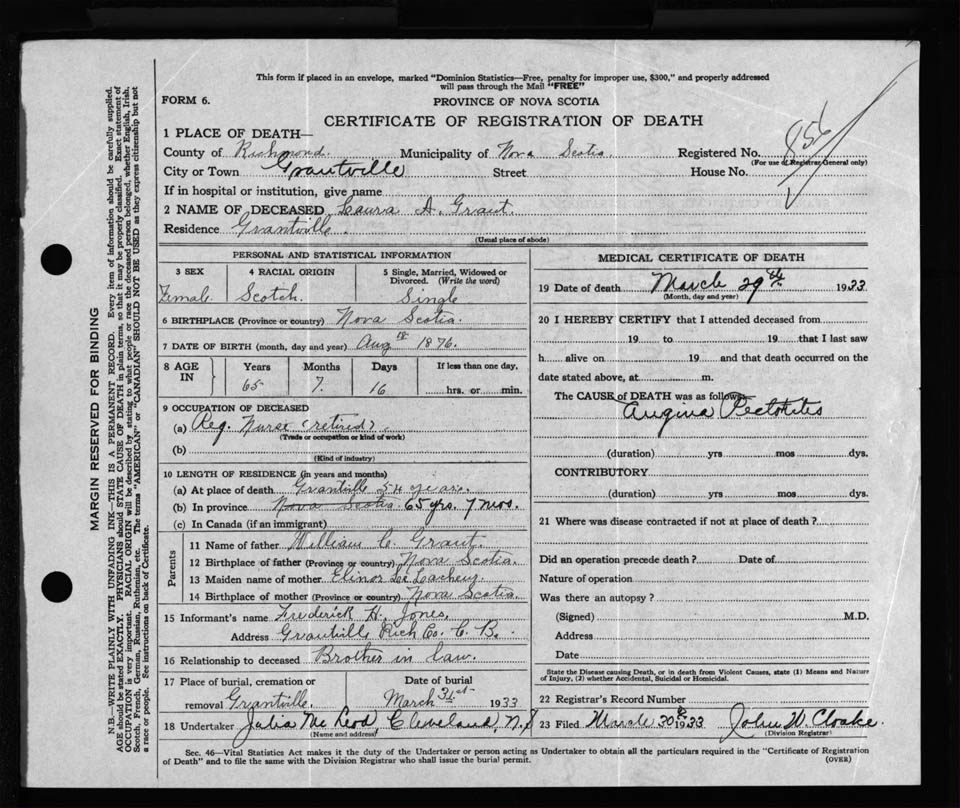 This form if placed in an envelope, marked "Dominion Statistics—Free, penalty for improper use, $300," and properly addressed
will pass through the Mail "FREE"
FORM 6.
PROVINCE OF NOVA SCOTIA
CERTIFICATE OF REGISTRATION OF DEATH
856
1 PLACE OF DEATH—
County of Richmond Municipality of Nova Scotia Registered No.
(For use of Registrar General only)
City or Town Grantville Street House No.
If in hospital or institution, give name
2 NAME OF DECEASED Laura A. Grant.
Residence Grantville.
(Usual place of abode)
PERSONAL AND STATISTICAL INFORMATION
3 SEX 4 RACIAL ORIGIN 5 Single, Married, Widowed or
Divorced. (Write the word)
Female. Scotch. Single
6 BIRTHPLACE (Province or country) Nova Scotia.
7 DATE OF BIRTH (month, day and year) Aug 1876.
8 AGE IN Years Months Days If less than one day,
65 7. 16 hrs. or min.
9 OCCUPATION OF DECEASED
(a) Reg. Nurse (retired).
(Trade or occupation or kind of work)
(b)
(Kind of industry)
10 LENGTH OF RESIDENCE (in years and months)
(a) At place of death Grantville 54 years.
(b) In province Nova Scotia 65 yrs. 7 mos.
(c) In Canada (if an immigrant)
Parents
11 Name of father William C. Grant.
12 Birthplace of father (Province or country) Nova Scotia.
13 Maiden name of mother Elinor
14 Birthplace of mother (Province or country) Nova Scotia.
15 Informant's name Frederick H. Jones,
Address Grantville Rich Co. C. B.
16 Relationship to deceased Brother in law.
17 Place of burial, cremation or Date of burial
removal Grantville. March 31st 1933
18 Undertaker Julia McLeod, Cleveland, N.S
(Name and address)
MEDICAL CERTIFICATE OF DEATH
19 Date of death March 29th 1933
(Month, day and year)
20 I HEREBY CERTIFY that I attended deceased from
19 to 19 that I last saw
h alive on 19 and that death occurred on the
date stated above, at m.
The CAUSE of DEATH was as follows:
Angina
(duration) yrs mos dys.
CONTRIBUTORY
(duration) yrs mos dys.
21 Where was disease contracted if not at place of death?
Did an operation precede death? Date of
Nature of operation
Was there an autopsy?
(Signed) M.D.
Address
Date
State the Disease causing Death, or in death from Violent Causes, state (1) Means and Nature
of Injury, (2) whether Accidental, Suicidal or Homicidal.
22 Registrar's Record Number 6
23 Filed March 30 1933 John W. Cloake.
(Division Registrar)
Sec. 46—Vital Statistics Act makes it the duty of the Undertaker or person acting as Undertaker to obtain all the particulars required in the "Certificate of Registration
of Death" and to file the same with the Division Registrar who shall issue the burial permit.
(OVER)
MARGIN RESERVED FOR BINDING
N.B.—WRITE PLAINLY WITH UNFADING INK—THIS IS A PERMANENT RECORD. Every item of information should be carefully supplied.
AGE should be stated EXACTLY. PHYSICIANS should STATE CAUSE OF DEATH in plain terms, so that it may be properly classified. Exact statement of
OCCUPATION is very important. RACIAL ORIGIN will be described by stating to what people or race the deceased person belonged, whether English, Irish,
Scotch, French, German, Russian, Ruthenian, etc. The terms "AMERICAN" or "CANADIAN" SHOULD NOT BE USED as they express citizenship but not
a race or people. See instructions on back of Certificate.